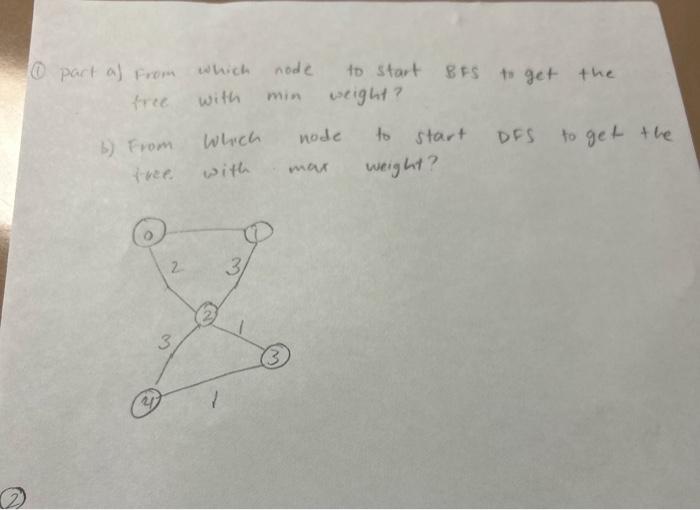 ① part a) From which node to start BFS to get the
tree with min weight?
b) From Which node to start DFS to get the
tree with max weight?
0 1
2 3
2
3 1
3
4 1
2